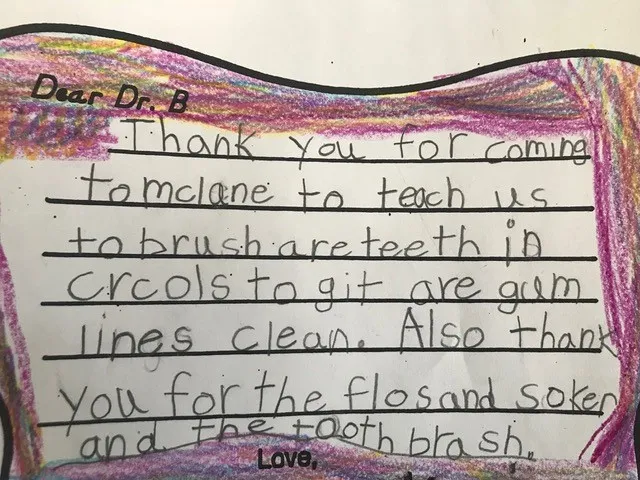 Dear Dr. B
Thank you for coming
to mclane to teach us
to brush are teeth in
crcols to git are gum
lines clean. Also thank
you for the flos and soker
and the tooth brash.
Love,